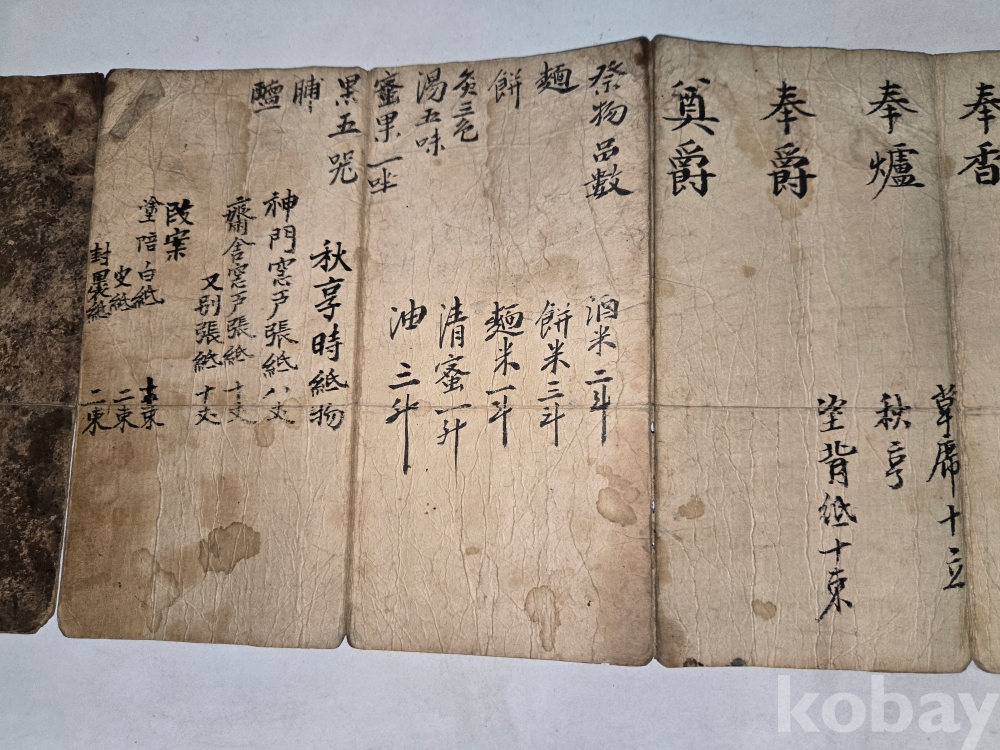 奉香
奉爐
奉爵
奠爵
草席十立
秋亨
塗背紙十束
祭物品數
麵
餠
炙三色
湯五味
蜜果一坐
酒米二斗
餠米三斗
麵米一斗
清蜜一升
油三升
果五器
脯
醢
秋享時紙物
神門窓戶張紙八丈
齋舍窓戶張紙十丈
又別張紙十丈
改案
塗褙白紙 束
史紙二束
封裹紙二束
kobay